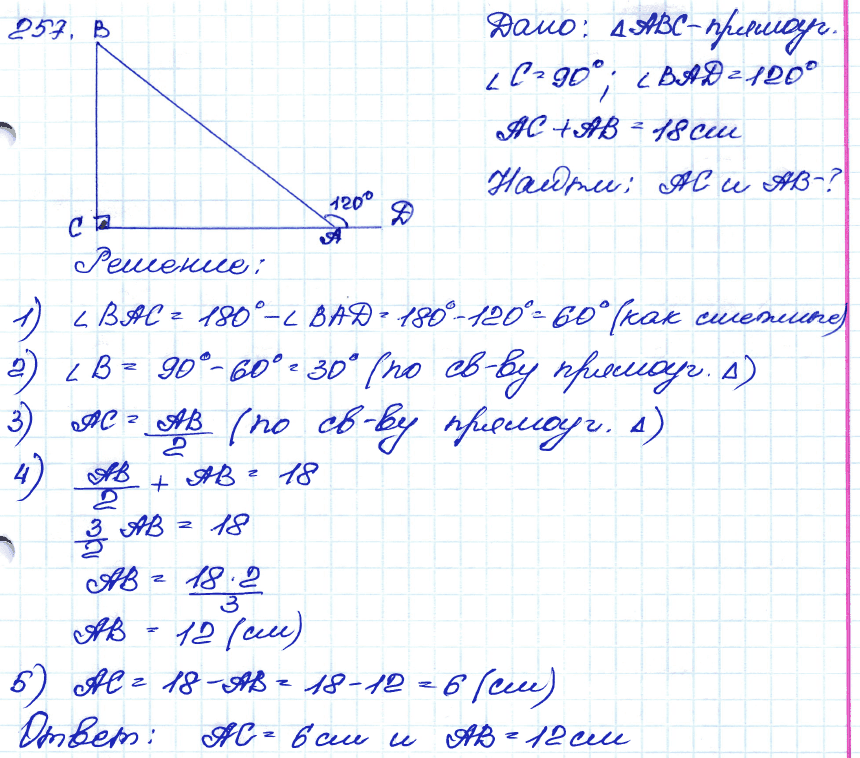 257. B
Дано: △ABC-прямоуг.
∠C=90°; ∠BAD=120°
AC+AB=18см
Найти: AC и AB-?
120°
C A D
Решение:
1) ∠BAC=180°-∠BAD=180°-120°=60° (как смежные)
2) ∠B= 90°-60°=30° (по св-ву прямоуг. △)
3) AC= AB/2 (по св-ву прямоуг. △)
4) AB/2 + AB = 18
3/2 AB = 18
AB = 18·2/3
AB = 12 (см)
5) AC= 18-AB= 18-12 =6 (см)
Ответ: AC= 6см и AB=12см